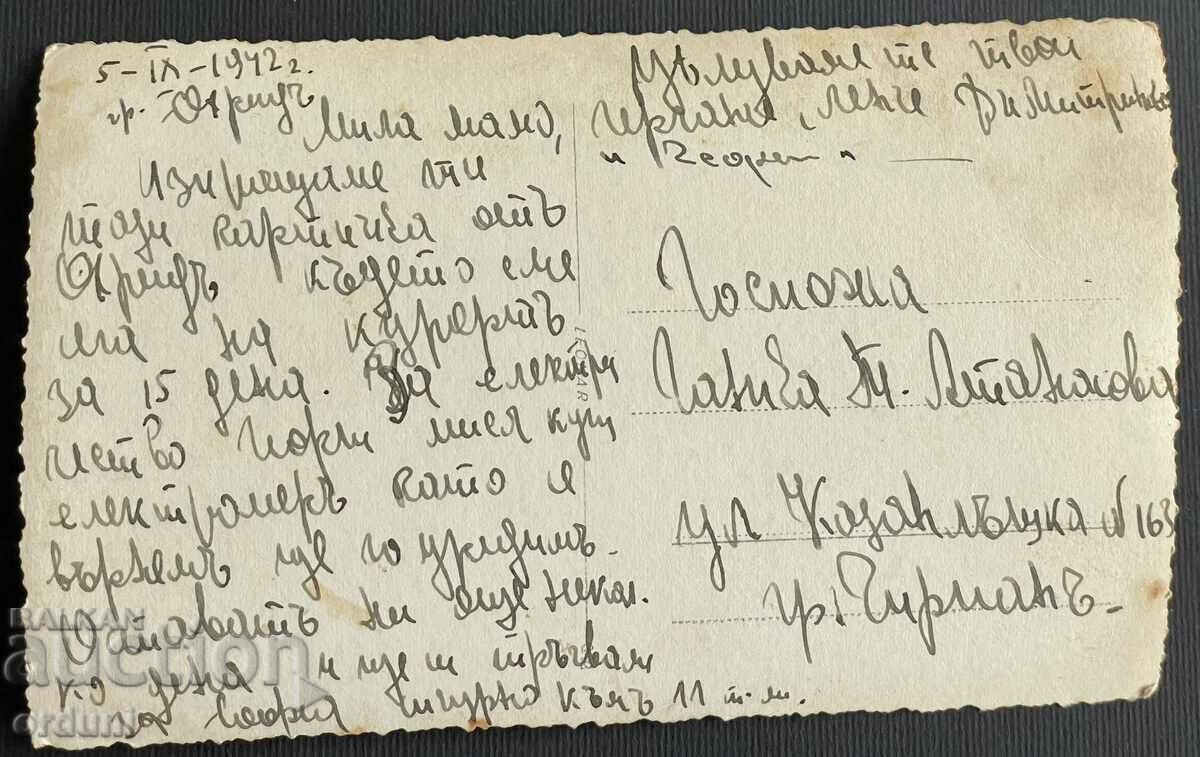 5-IX-1942 г.
гр. Охридъ
Мила мамо,
Изпращаме ти
тази картичка отъ
Охридъ където сме
на курортъ
за 15 дена. За електри
чество Чорли мисля купи
електромеръ като се
върнемъ ще го уредимъ.
Оставатъ ни още някол
ко дена и ще тръгвам
за София турно къмъ 11 т.м.
Целуваме те твои
Ленче Димитрикевъ
" "
Госпожа
Ганка Т. Атанасова
ул Казанлъшка № 163
гр. Чирпанъ.
LEONAR
BALKAN
auction
orduni